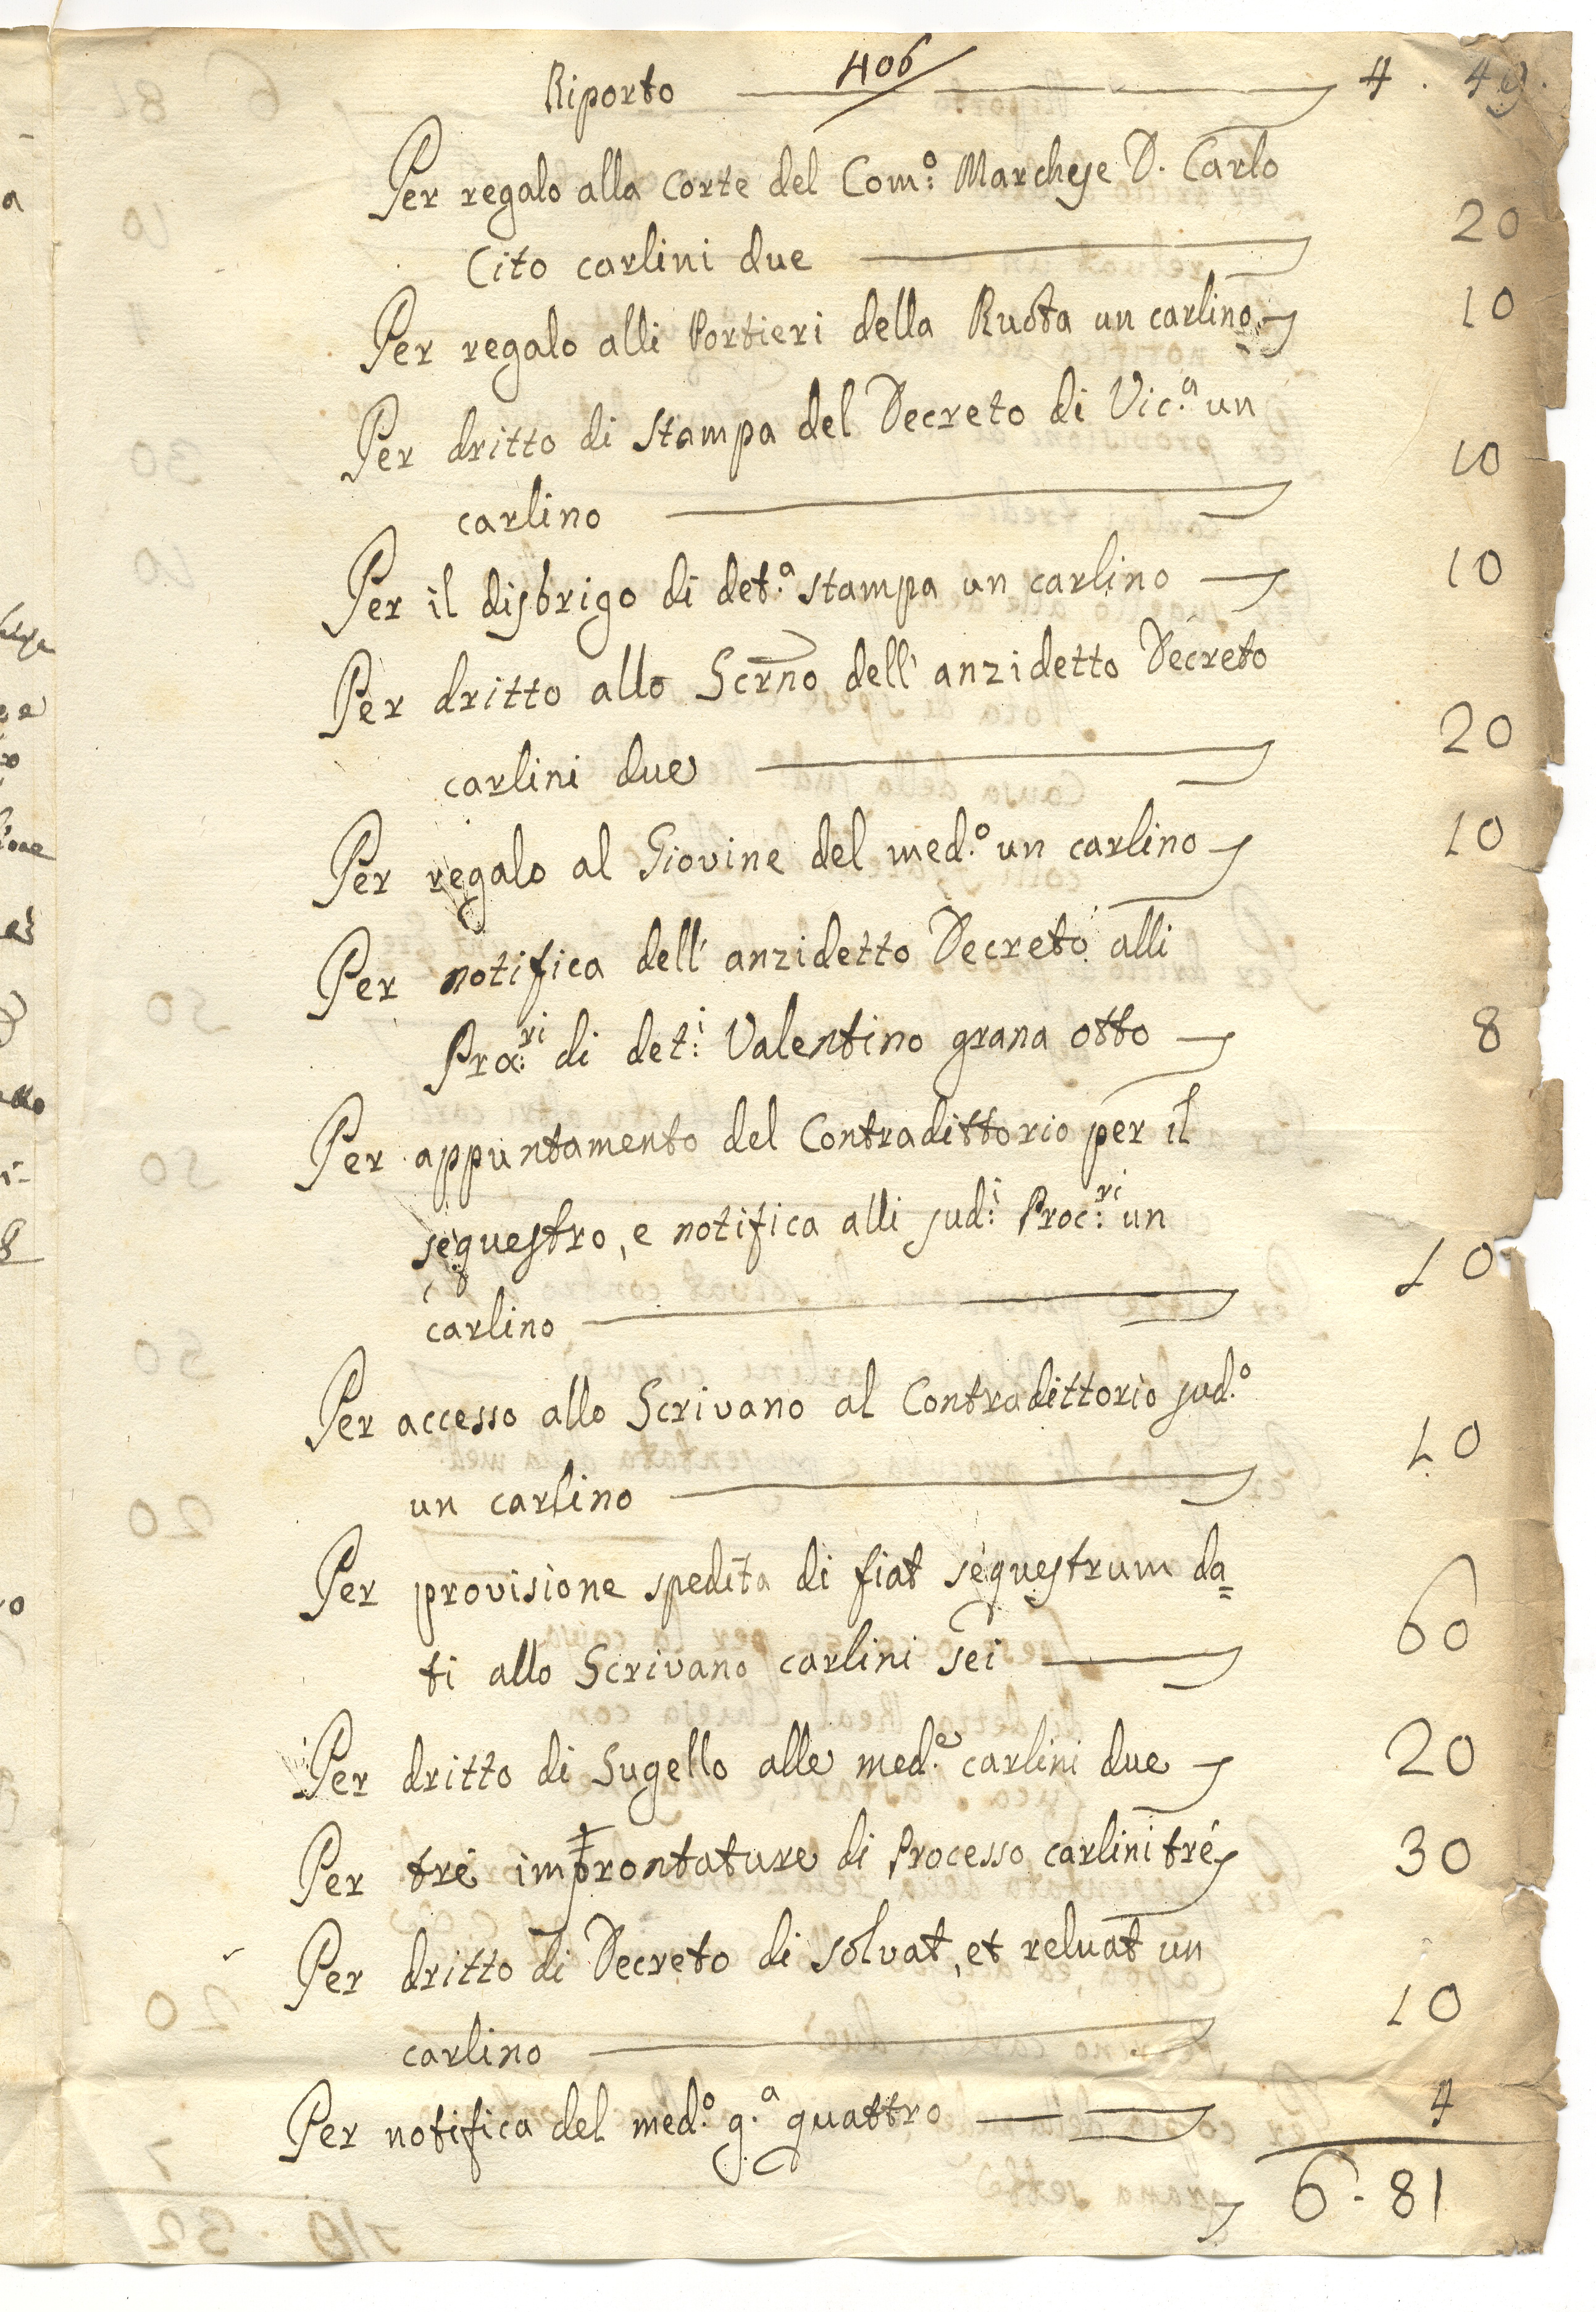 406
Riporto 4 . 49.
Per regalo alla Corte del Com:o Marchese D. Carlo
Cito carlini due 20
Per regalo alli Portieri della Ruota un carlino 10
Per dritto di stampa del Decreto di Vic.a un
carlino 10
Per il disbrigo di det.a stampa un carlino 10
Per dritto allo Scrno dell' anzidetto Decreto
carlini due 20
Per regalo al Giovine del med.o un carlino 10
Per notifica dell' anzidetto Decreto alli
Proc:ri di det:i Valentino grana otto 8
Per appuntamento del Contradittorio per il
sequestro, e notifica alli sud:i Proc:ri un
carlino 10
Per accesso allo Scrivano al Contradittorio sud.o
un carlino 10
Per provisione spedita di fiat sequestrum da=
ti allo Scrivano carlini sei 60
Per dritto di Sugello alle med.e carlini due 20
Per tré improntature di Processo carlini tré 30
Per dritto di Decreto di solvat, et reluat un
carlino 10
Per notifica del med:o g.a quattro 4
6 . 81